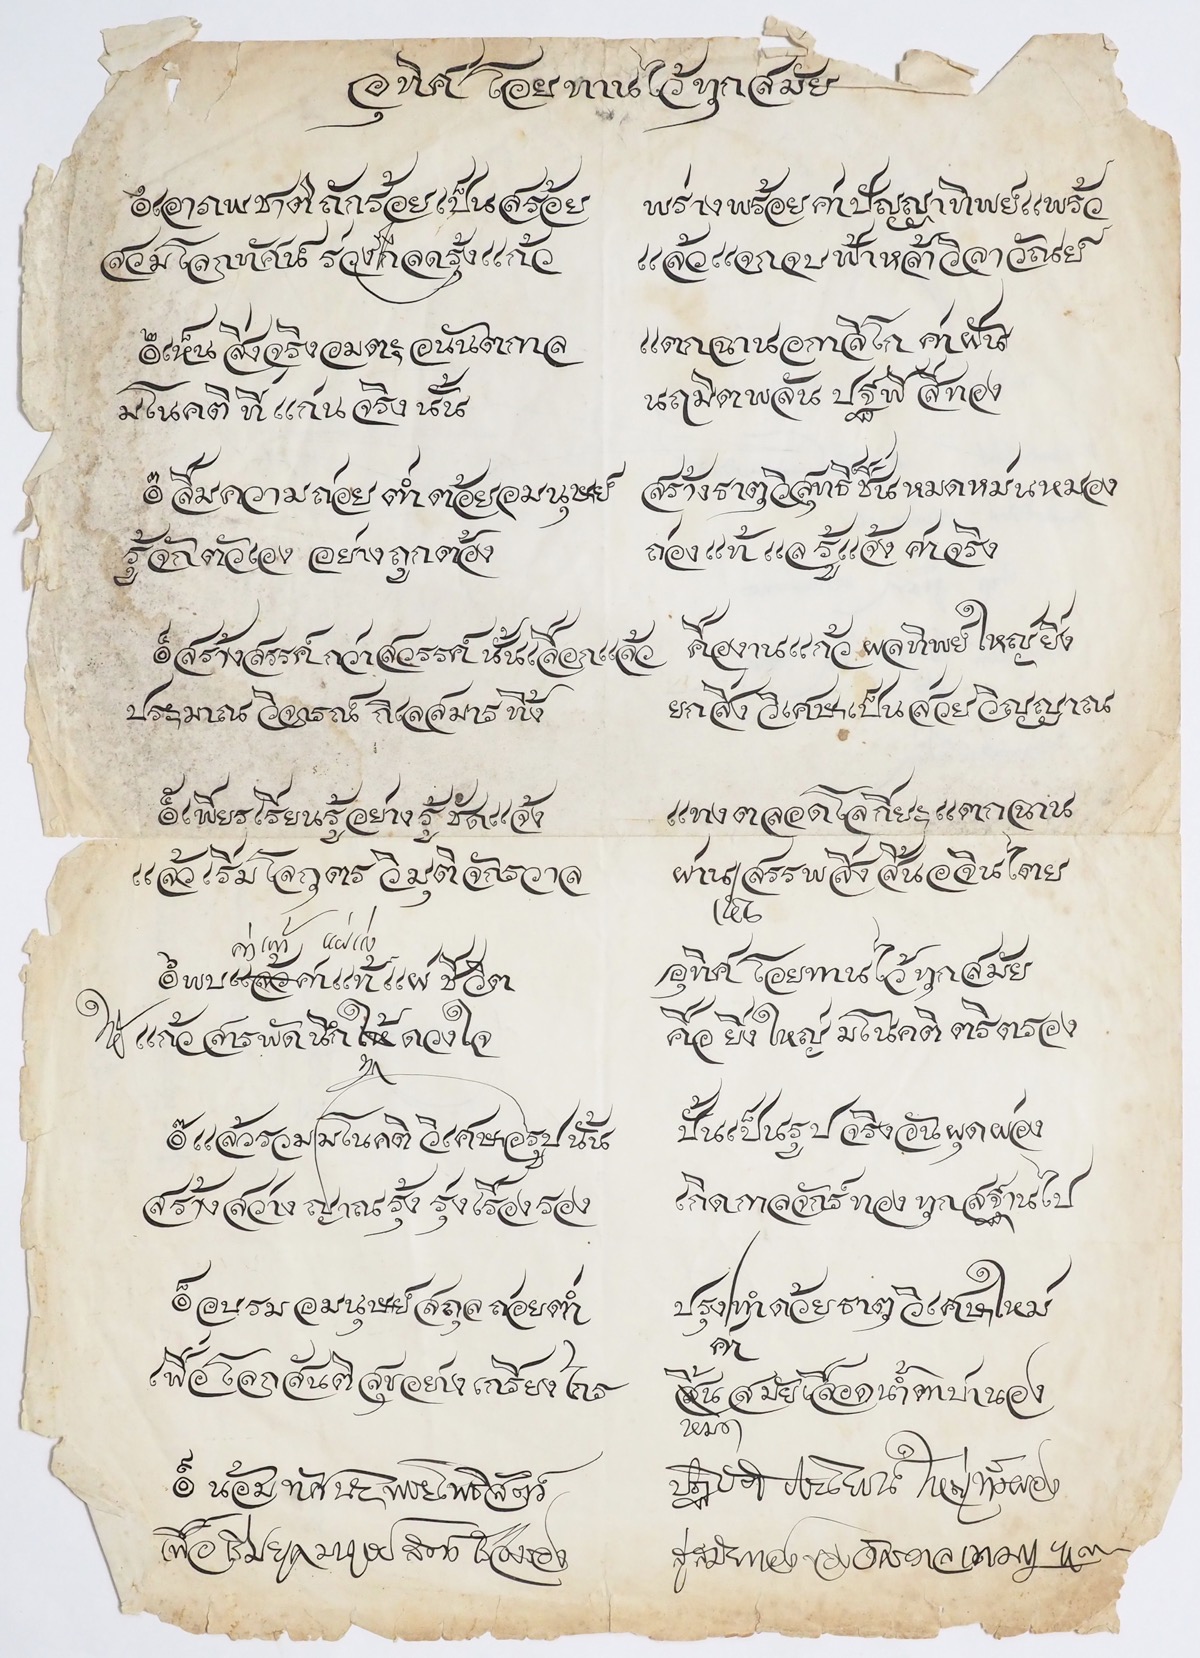 อุทิศ โอยทานไว้ทุกสมัย
๏เอาภพชาติถักร้อยเป็นสร้อย พร่างพร้อยค่าปัญญาทิพย์แพร้ว
สวมโลกทัศน์ ร่วงกิลดรุ้งแก้ว แล้วแจกจบฟ้าหล้าวิลาวัณย์
๏เห็น สิ่งจริงอมตะ อนันตกาล แตกฉานอกาลิโก ค่าฝัน
มโนคติ ที่ แก่น จริง นั้น นฤมิตพลัน ปฐพี สีทอง
๏ ลืมความถ่อย ต่ำ ต้อยอมนุษย์ สร้างธาตุวิสุทธิ์ชื้นหมดหม่นหมอง
รู้จักตัวเอง อย่างถูกต้อง ถ่องแท้ แล รู้แจ้ง ค่าจริง
๏สร้างสรรค์กว่าสวรรค์นั้นเลือกแล้ว คืองานแก้ว ผลทิพย์ใหญ่ยิ่ง
ประมาณ วิจารณ์ กิเลสมาร ทิ้ง ยกสิ่ง วิเศษเป็นสวยวิญญาณ
๏เพียรเรียนรู้อย่างรู้ ชัดแจ้ง แทงตลอดโลกียะแตกฉาน
แล้วเริ่มโลกุตร วิมุติจักรวาล ผ่านสรรพสิ่งสิ้นอจินไตย
ค่าแท้
๏พบ ค่าแท้แผ่ ชีวิต อุทิศ โอยทานไว้ทุกสมัย
ให้แก้วสารพัดนึก ดวงใจ คือ ยิ่งใหญ่ มโนคติ ตริตรอง
๏แล้วรวมมโนคติ วิเศษอรูปนั้น ปั้นเป็นรูป จริงอันผุดผ่อง
สร้างสว่าง ญาณรุ้ง รุ่งเรืองรอง เกิดกาลจักร์ทอง ทุกสฐานไป
๏อบรม อมนุษย์สถุลถ่อยต่ำ ปรุงทำด้วยธาตุวิเศษใหม่
เพื่อโลกสันติสุขอย่างเกรียงไกร สมัยเลือดน้ำตาบ่านอง
ค่า
หมด
๏ น้อมทัศนะ โพธิสัตว์ ปฏิบัติ ใหญ่ทั้งผอง
เพื่อเริ่มยุค สู่สมัยทองของ